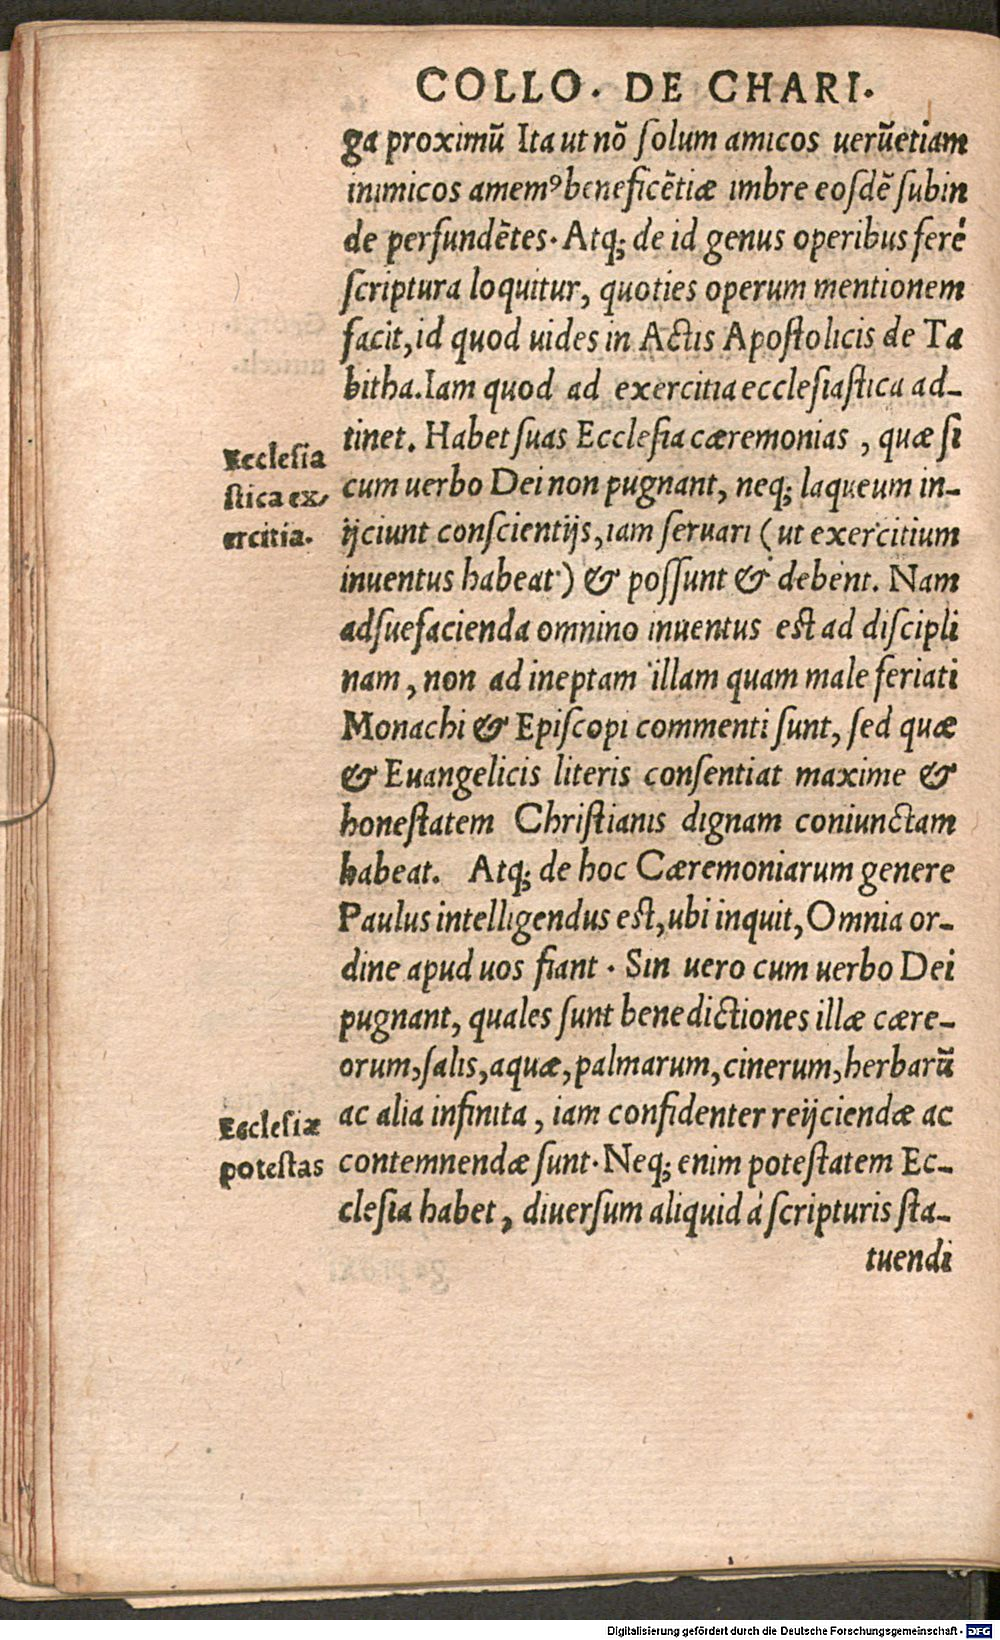 COLLO. DE CHARI.
ga proximũ Ita ut nõ ſolum amicos uerũetiam
inimicos amemꝰ beneficẽtiæ imbre eoſdẽ ſubin
de perfundẽtes. Atq; de id genus operibus ferè
ſcriptura loquitur, quoties operum mentionem
facit, id quod uides in Actis Apoſtolicis de Ta
bitha. Iam quod ad exercitia eccleſiaſtica ad-
tinet. Habet ſuas Eccleſia cæremonias, quæ ſi
cum uerbo Dei non pugnant, neq; laqueum in-
ijciunt conſcientijs, iam ſeruari (ut exercitium
inuentus habeat) & poſſunt & debent. Nam
adſuefacienda omnino inuentus eſt ad diſcipli
nam, non ad ineptam illam quam male feriati
Monachi & Epiſcopi commenti ſunt, ſed quæ
& Euangelicis literis conſentiat maxime &
honeſtatem Chriſtianis dignam coniunctam
habeat. Atq; de hoc Cæremoniarum genere
Paulus intelligendus eſt, ubi inquit, Omnia or-
dine apud uos fiant. Sin uero cum uerbo Dei
pugnant, quales ſunt benedictiones illæ cære-
orum, ſalis, aquæ, palmarum, cinerum, herbarũ
ac alia infinita, iam confidenter reijciendæ ac
contemnendæ ſunt. Neq; enim poteſtatem Ec-
cleſia habet, diuerſum aliquid à ſcripturis ſta-
tuendi
Eccleſia
ſtica ex-
ercitia.
Eccleſiæ
poteſtas
Digitalisierung gefördert durch die Deutsche Forschungsgemeinschaft - DFG